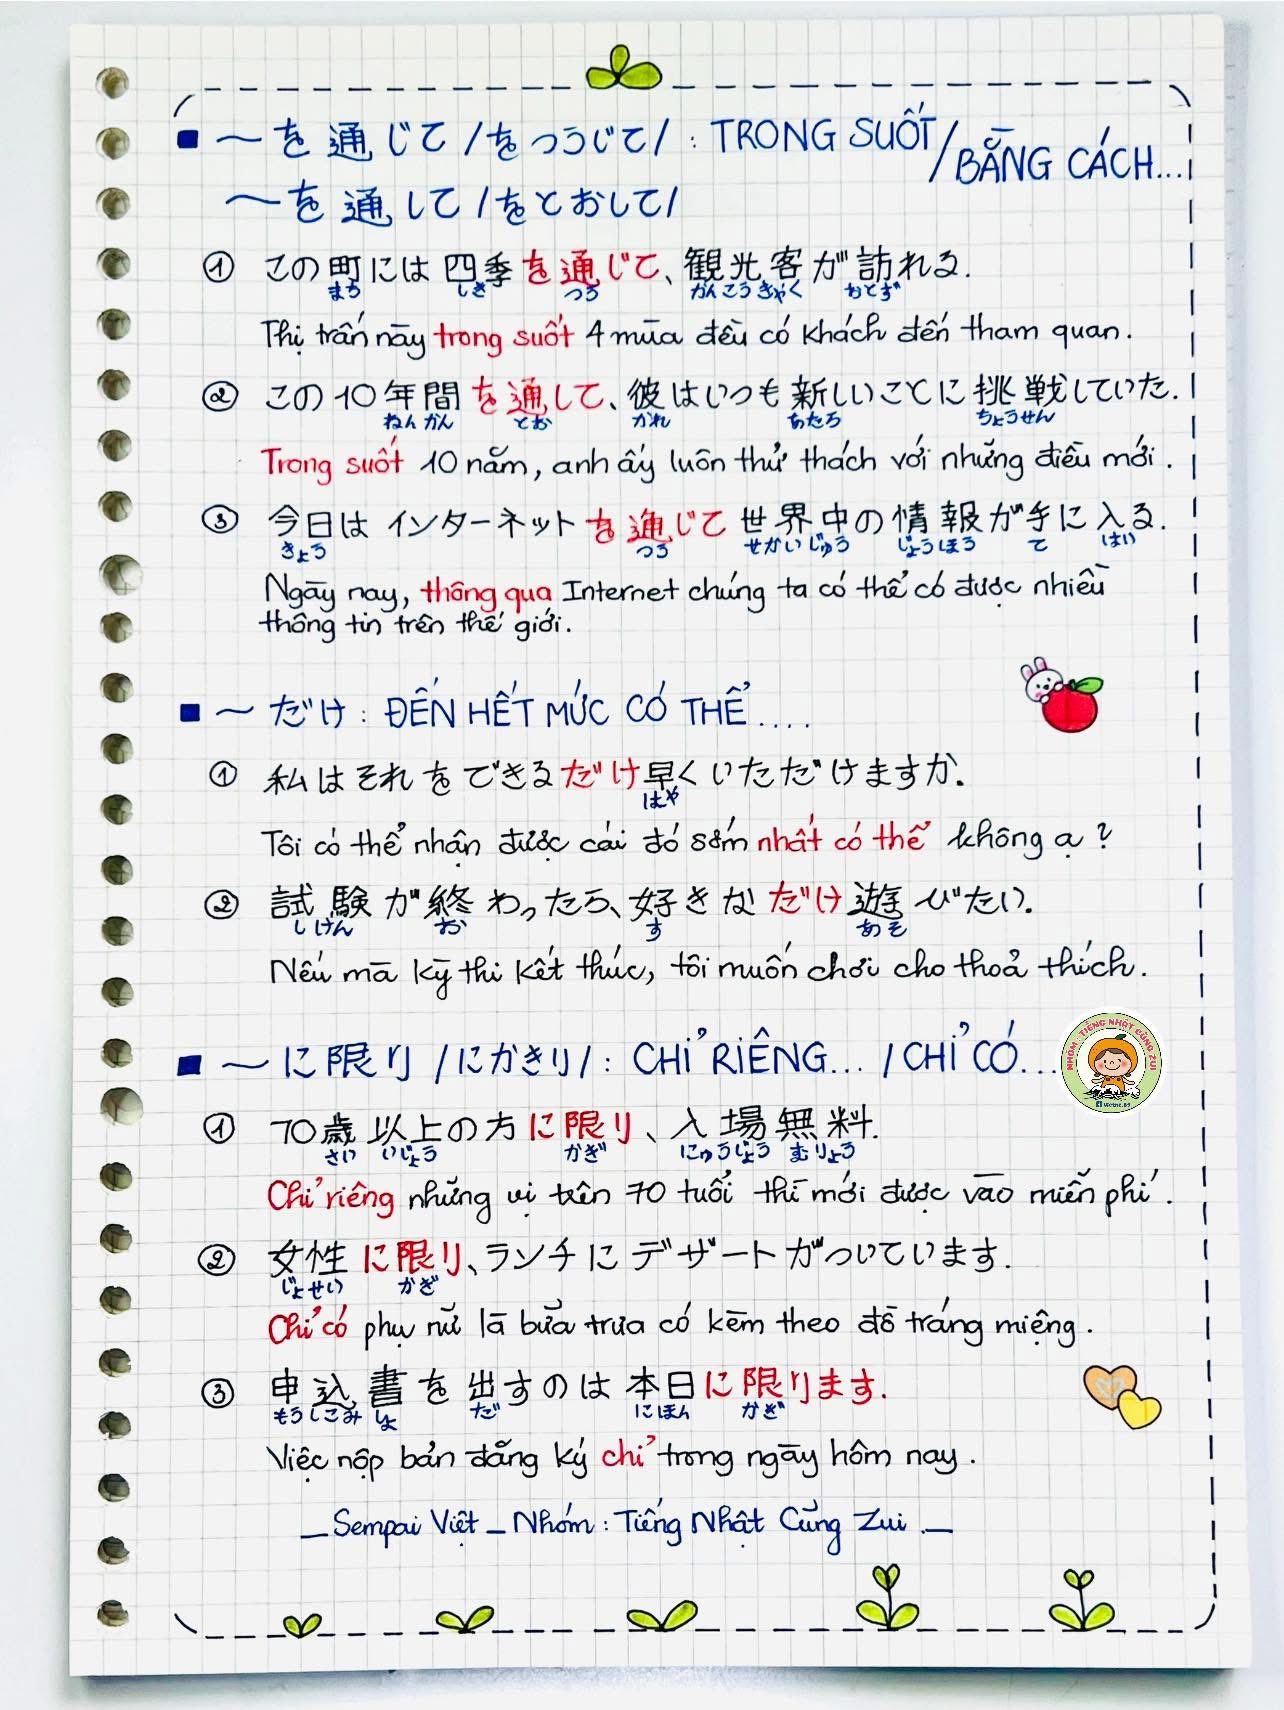 ■ ～を通じて /をつうじて/ : TRONG SUỐT/BẰNG CÁCH...
～を通して /をとおして/
① この町には四季を通じて、観光客が訪れる.
まち しき つう かんこうきゃく おとず
Thị trấn này trong suốt 4 mùa đều có khách đến tham quan.
② この10年間を通して、彼はいつも新しいことに挑戦していた.
ねんかん とお かれ あたら ちょうせん
Trong suốt 10 năm, anh ấy luôn thử thách với những điều mới.
③ 今日はインターネットを通じて世界中の情報が手に入る.
きょう つう せかいじゅう じょうほう て はい
Ngày nay, thông qua Internet chúng ta có thể có được nhiều
thông tin trên thế giới.
■ ～だけ : ĐẾN HẾT MỨC CÓ THỂ....
① 私はそれをできるだけ早くいただけますか.
はや
Tôi có thể nhận được cái đó sớm nhất có thể không ạ?
② 試験が終わったら、好きなだけ遊びたい.
しけん お す あそ
Nếu mà kỳ thi kết thúc, tôi muốn chơi cho thoả thích.
■ ～に限り /にかきり/ : CHỈ RIÊNG... / CHỈ CÓ...
NHÓM - TIẾNG NHẬT CÙNG ZUI
① 70歳以上の方に限り、入場無料.
さい いじょう かぎ にゅうじょう むりょう
Chỉ riêng những vị trên 70 tuổi thì mới được vào miễn phí.
② 女性に限り、ランチにデザートがついています.
じょせい かぎ
Chỉ có phụ nữ là bữa trưa có kèm theo đồ tráng miệng.
③ 申込書を出すのは本日に限ります.
もうしこみしょ だ にほん かぎ
Việc nộp bản đăng ký chỉ trong ngày hôm nay.
_ Sempai Việt _ Nhóm : Tiếng Nhật Cùng Zui _